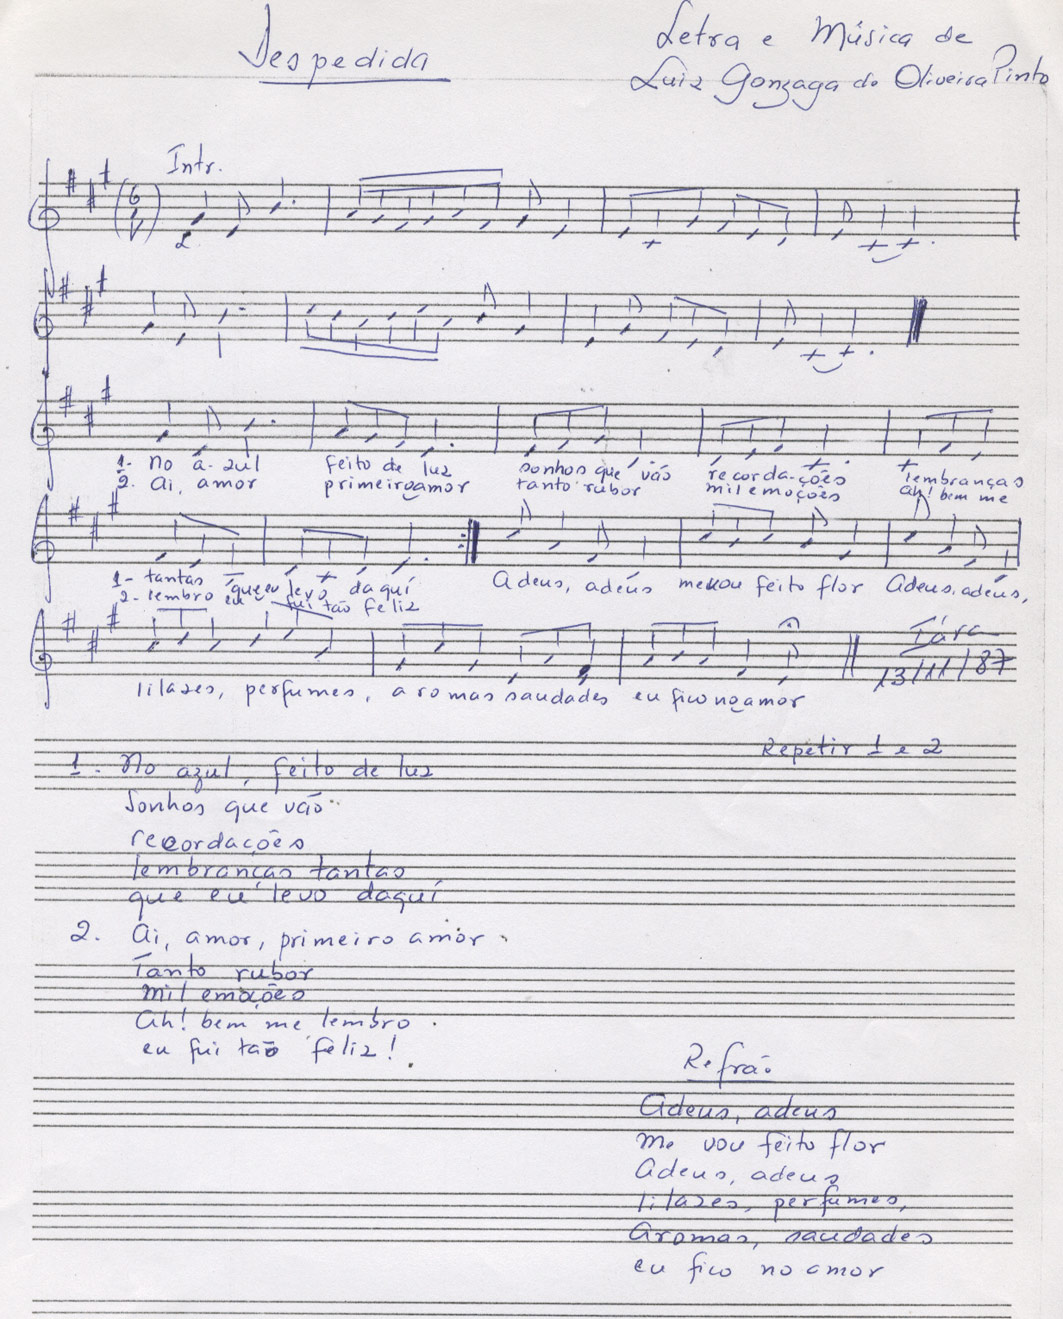 Despedida
Letra e Música de
Luiz Gonzaga de Oliveira Pinto
Intr.
6
1- No a-zul feito de luz sonhos que vão recorda-ções lembranças
2. Ai, amor primeiro amor tanto rubor mil emoções ah! bem me
1- tantas que eu levo daquí Adeus, adeus me vou feito flor Adeus, adeus,
2- lembro eu fui tão feliz
lilazes, perfumes, aromas saudades eu fico no amor
13/11/87
Repetir 1 e 2
1. No azul, feito de luz
Sonhos que vão
recordações
lembranças tantas
que eu levo daquí
2. Ai, amor, primeiro amor
Tanto rubor
Mil emoções
Ah! bem me lembro
eu fui tão feliz!
Refrão
Adeus, adeus
Me vou feito flor
Adeus, adeus
lilazes, perfumes,
Aromas, saudades
eu fico no amor